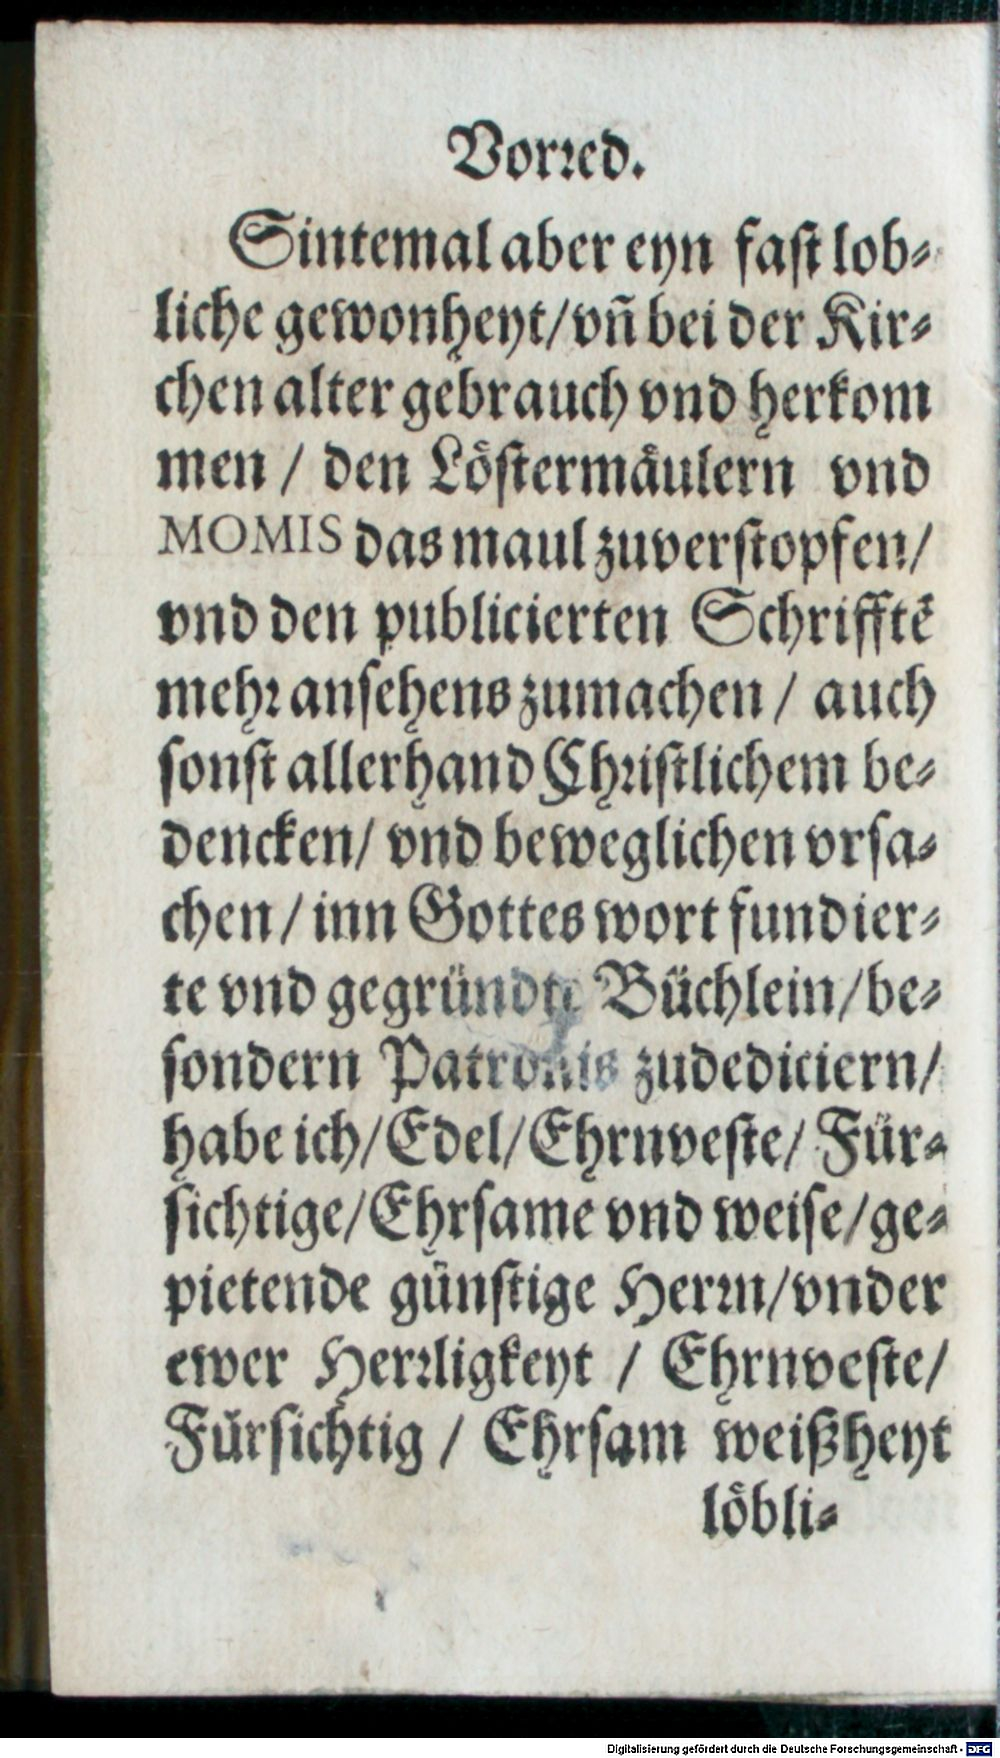 Vorꝛed.
Sintemal aber eyn faſt lob⸗
liche gewonheyt/vn̄ bei der Kir⸗
chen alter gebrauch vnd herkom
men / den Löſtermäulern vnd
MOMIS das maul zuverſtopfen/
vnd den publicierten Schrifftē
mehꝛ anſehens zumachen / auch
ſonſt allerhand Chꝛiſtlichem be⸗
dencken/ vnd beweglichen vrſa⸗
chen / inn Gottes wort fundier⸗
te vnd gegründte Büchlein/be⸗
ſondern Patronis zudediciern/
habe ich/Edel/Ehrnveſte/ Für⸗
ſichtige/Ehrſame vnd weiſe/ge⸗
pietende günſtige Herꝛn/vnder
ewer Herꝛligkeyt / Ehrnveſte/
Fürſichtig / Ehrſam weißheyt
löbli⸗
Digitalisierung gefördert durch die Deutsche Forschungsgemeinschaft - DFG